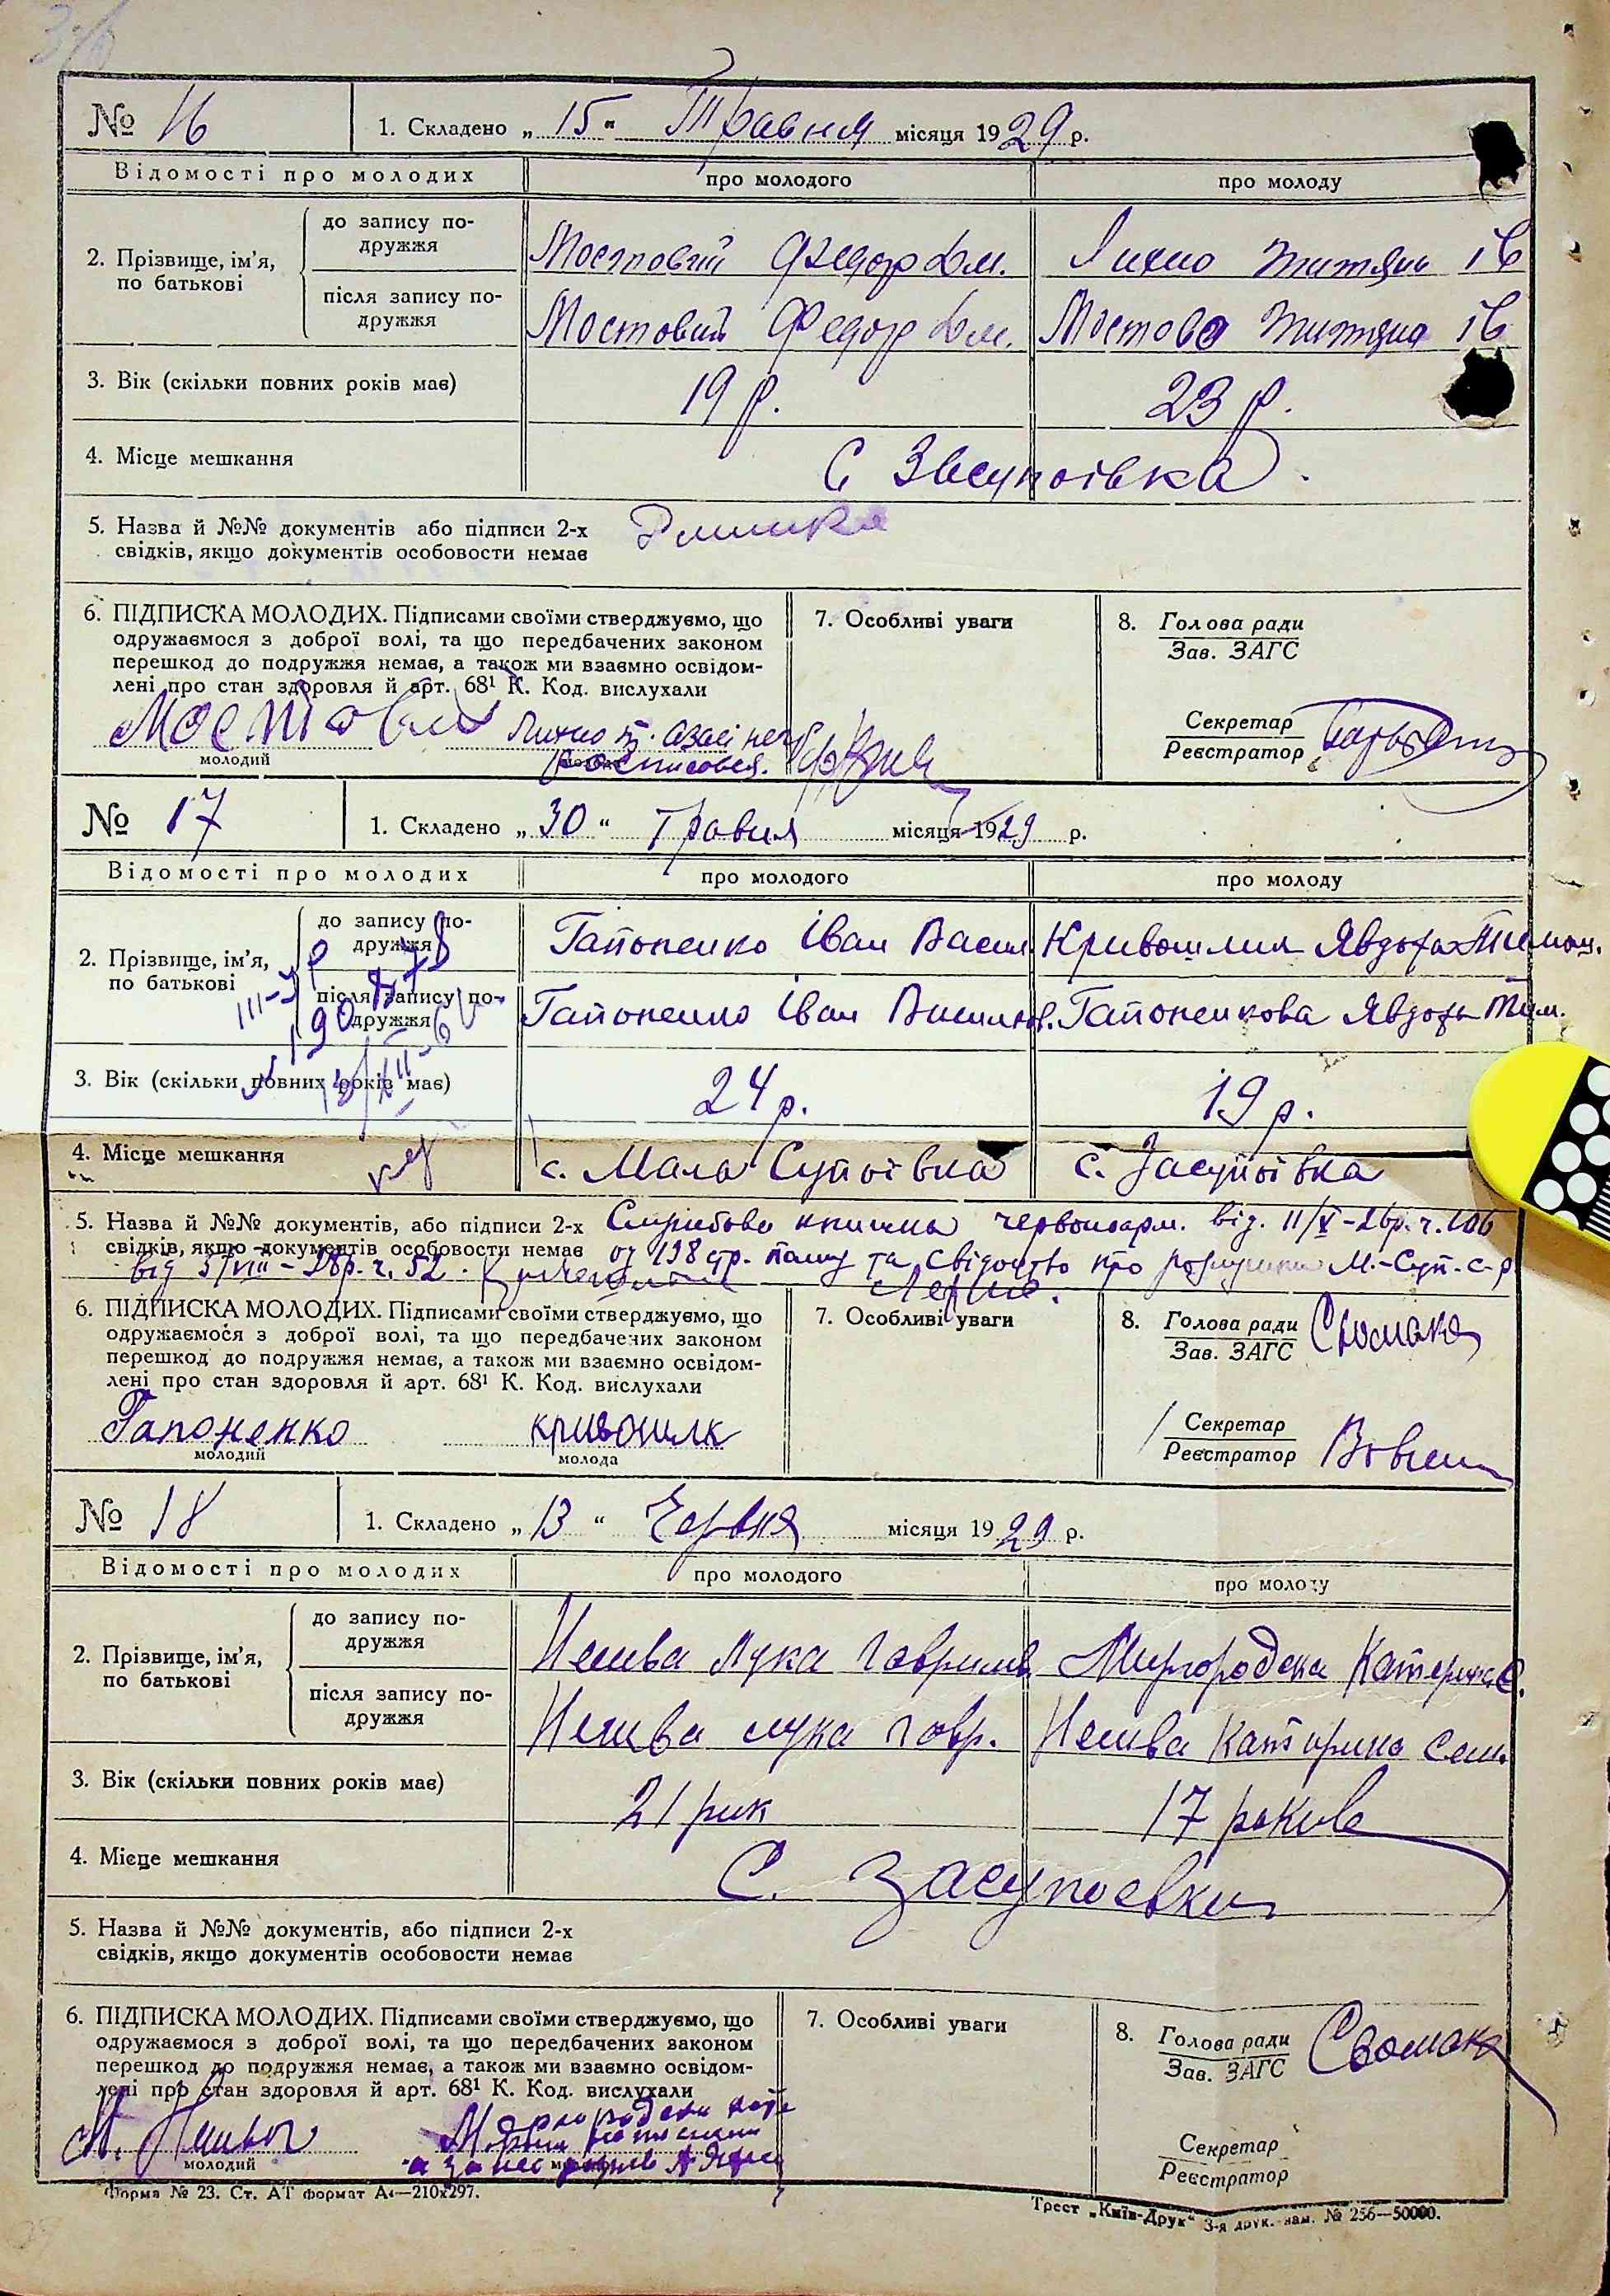 № 16
1. Складено „ 15 “ Травня місяця 1929 р.
Відомості про молодих про молодого про молоду
2. Прізвище, ім'я, по батькові
до запису по-
дружжя
Мостовий Федор Дм. Лихио Титяна ів
після запису по-
дружжя
Мостовий Федор Дм. Мостова Титяна ів
3. Вік (скільки повних років має) 19 р. 23 р.
4. Місце мешкання с Засупоівка
5. Назва й №№ документів або підписи 2-х
свідків, якщо документів особовости немає
6. ПІДПИСКА МОЛОДИХ. Підписами своїми стверджуємо, що
одружаємося з доброї волі, та що передбачених законом
перешкод до подружжя немає, а також ми взаємно освідом-
лені про стан здоровля й арт. 68¹ К. Код. вислухали
Мостовий
молодий
7. Особливі уваги
8. Голова ради
Зав. ЗАГС
Секретар
Реєстратор
№ 17
1. Складено „ 30 “ Травня місяця 1929 р.
Відомості про молодих про молодого про молоду
2. Прізвище, ім'я,
по батькові
до запису по-
дружжя
Гапоненко Іван Васил Кривошлик Явдоха Тимош.
після запису по-
дружжя
Гапоненко Іван Васильов. Гапоненкова Явдоха Тим.
3. Вік (скільки повних років має) 24 р. 19 р.
4. Місце мешкання с. Мала Супоівка с. Засупоівка
5. Назва й №№ документів, або підписи 2-х Службова книжка червоноарм. від. 11/V-26р. ч. 106
свідків, якщо документів особовости немає 198 стр. полку та свідоцтво про М.-Суп. с-р
від 5/VIII-28р. ч. 52.
6. ПІДПИСКА МОЛОДИХ. Підписами своїми стверджуємо, що
одружаємося з доброї волі, та що передбачених законом
перешкод до подружжя немає, а також ми взаємно освідом-
лені про стан здоровля й арт. 68¹ К. Код. вислухали
Гапоненко кривошлк
молодий молода
7. Особливі уваги
8. Голова ради
Зав. ЗАГС
Секретар
Реєстратор
№ 18
1. Складено „ 13 “ Червня місяця 1929 р.
Відомості про молодих про молодого про молоду
2. Прізвище, ім'я,
по батькові
до запису по-
дружжя
Лука Гаврилов Миргородська Катерина С.
після запису по-
дружжя
лука Гавр. Катирина Сем.
3. Вік (скільки повних років має) 21 рик 17 рокив
4. Місце мешкання С. Засупоевки
5. Назва й №№ документів, або підписи 2-х
свідків, якщо документів особовости немає
6. ПІДПИСКА МОЛОДИХ. Підписами своїми стверджуємо, що
одружаємося з доброї волі, та що передбачених законом
перешкод до подружжя немає, а також ми взаємно освідом-
лені про стан здоровля й арт. 68¹ К. Код. вислухали
молодий
7. Особливі уваги
8. Голова ради
Зав. ЗАГС
Секретар
Реєстратор
Форма № 23. Ст. АТ формат А4—210х297.
Трест „Київ-Друк“ 3-я друк. зам. № 256—50000.